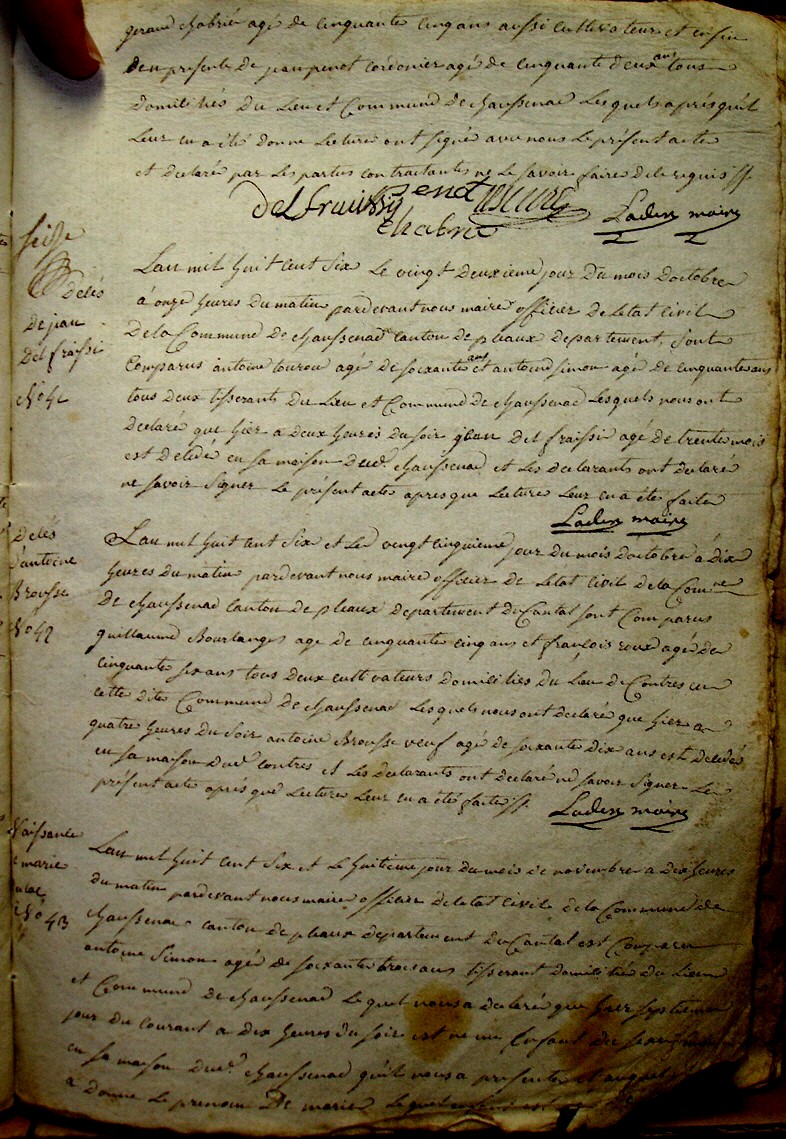 geraud chabrié agé de cinquante cinq ans aussi cultivateur et enfin
de présente de jean penot cordonier agé de cinquante deux ans tous
domiciliés du Lieu et Commune de chaussenac Lesquels après qu'il
Leur en a été donné Lecture ont signé avec nous Le présent acte
et déclaré par Les parties contractantes ne Le savoir faire de ce requis ff
Delfraissy penot
chabrié
Laden maire
Décés
De jean
Delfraissi
No 41
L'an mil huit cent six Le vingt deuxieme jour Du mois D'octobre
à onze heures du matin pardevant nous maire officier de L'etat Civil
De La Commune De chaussenac canton de pleaux departement, sont
Comparus antoine tourou agé de soixante ans et antoine simon agé de cinquante ans
tous deux tisserants du Lieu et Commune de chaussenac Lesquels nous ont
declaré que hier a deux heures du soir jean Delfraissi agé de trente mois
est décédé en sa maison dud. chaussenac et Les declarants ont declaré
ne savoir signer Le présent acte apres que Lecture Leur en a été faite
Laden maire
Décés
d'antoine
Brousse
No 42
L'an mil huit cent six et Le vingt cinquieme jour du mois D'octobre à dix
heures du matin pardevant nous maire officier de L'etat Civil de la Comne
De chaussenac canton de pleaux departement du Cantal sont Comparus
guillaume Bourlanges age de cinquante cinq ans et françois roux agé de
cinquante six ans tous deux cultivateurs domiciliés du Lieu de Contres en
cette dite Commune de chaussenac Lesquels nous ont declaré que hier a
quatre heures du soir antoine Brousse veuf agé de soixante dix ans est décédé
en sa maison dud. contres et Les declarants ont declaré ne savoir signer Le
présent acte aprés que Lecture Leur en a été faite ff.
Laden maire
Naissance
marie
No 43
L'an mil huit cent six et Le huitieme jour du mois de novembre a dix heures
du matin pardevant nous maire officier de L'etat Civil de la Commune de
chaussenac canton de pleaux departement du Cantal est Comparu
antoine Simon agé de soixante trois ans tisserant domicilié du Lieu
et Commune de chaussenac Lequel nous a declaré que hier septieme
jour du courant a dix heures du soir est né un Enfant du sexe
en sa maison dud. chaussenac qu'il nous a présenté et auquel
a donné Le prenom De marie Lequel enfant est